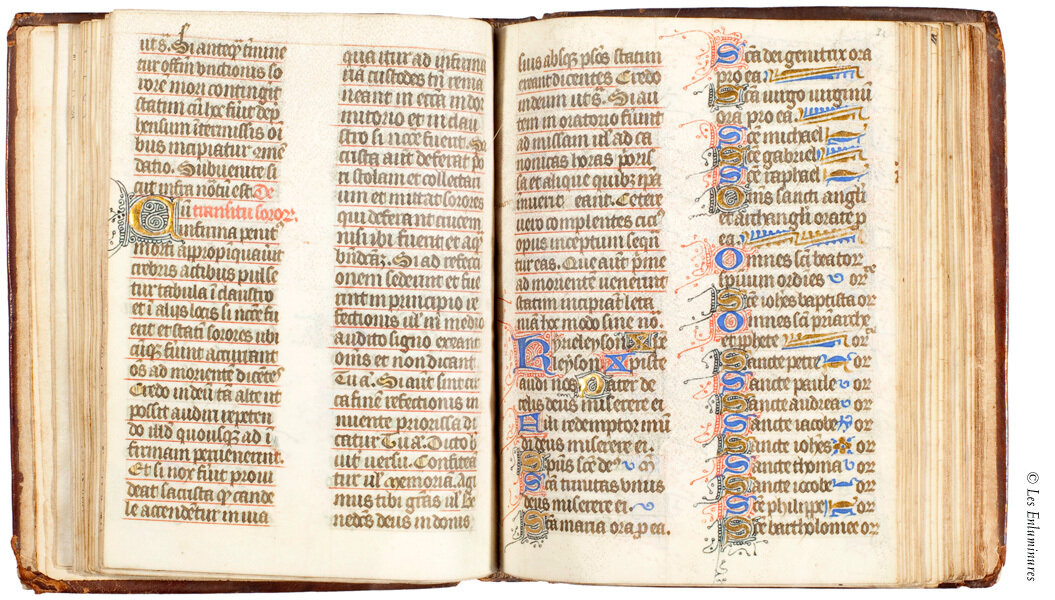 ut s̄. Si anteqͣ tmine
tur offm̄ vnctionis so
rore mori contingit
statim cū hec fuit dep
hensum ītermissis oī
bus incipiatur ɔmē
datio. Subuenite si
cut infra notū est. De
transitu soror.
Cū infirma penitꝰ
morti appropīquauit
crebris actibus pulse
tur tabula ī claustro
et ī alijs locis si nccē fu
erit et statī sorores ubi
cūqꝫ fuint accurrant
os ad moriente dicētes
Credo in deū tā alte ut
possit audiri repeten
do illd quousqꝫ ad ī
firmam peruenerint.
Et si nox fuit prouī
deat sacrista qͥ cande
le accendetur in uia
qua itur ad infirmā
uā custodes tn̄ rema
neant in ecca in dor
mitorio et in clau
stro si nccē fuerit. Sa
crista aut deferat p̄
ri stolam et collectari
um et mittat sorores
qui deferant crucem
nisi ibi fuerit et aq̄
bn̄dcāꝫ. Si ad refecti
onem sederint et fue
rint in principio re
fectionis ul in medio
audito signo exeant
omīs et non dicant
Tu a. Si aut sint cir
ca finē refectionis in
nuente priorissa di
catur Tu ā. Dicto b
uit uersu. Confitea
tur ul Memoria. Agi
mus tibi gr̄as ul be
nedcs deus in donis
suis absqꝫ pl̄os statim
exeant dicentes Credo
in deum ut s̄. Si au
tem in oratorio fūint
ad missam ul ad ca
nonicas horas p̄oris
sa et alique quibꝫ ip̄a
innuerit eant. Cetere
uero complentes citiꝰ
opus inceptum seqn̄
tur eas. Que aūt p̄me
ad moriente uenerint
statim incipiāt leta
nia hoc modo sine no.
Kyrieleyson Xpe
leyson Xpiste
audi nos Pater de
celis deus miserere ei
Fili redemptor mū
di deus miserere ei.
Spūs scē deꝰ m̄
Scā trinitas vnus
deus miserere ei.
Scā maria ora p ea.
Scā dei genitrix ora
pro ea
Scā uirgo uirginū
ora pro ea.
Scē michael
Scē gabriel
Scē raphael
Om̄s sancti angli
et archangli orate p
ea.
Omnes scī beator
spirituum ordīes or
Scē iohēs baptista or
Omnes scī p̄riarche
et p̄phete or
Sancte petre or
Sancte paule or
Sancte andrea or
Sancte iacobe or
Sancte iohēs or
Sancte thoma or
Sancte iacobe or
Sancte philippe or
Scē bartholomee or
© Les Enluminures